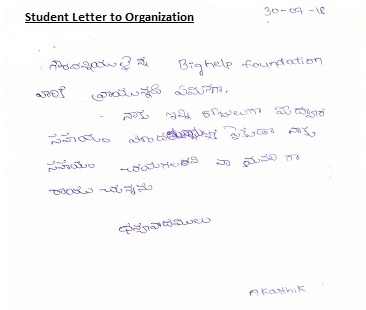 Student Letter to Organization
30-07-18
గౌరవనీయులైన Bighelp foundation
వారికి వ్రాయునది ఏమనగా,
నాకు ఇన్ని రోజులుగా
సహాయం
సహాయం చేయగలరని నా మనవి గా
రాయు చున్నను
ధన్యవాదములు
A Karthik